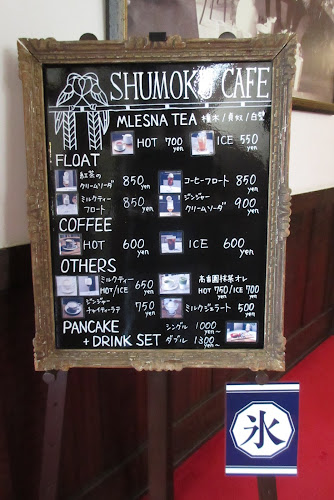 SHUMOKU CAFE
MLESNA TEA 橦木/貞奴/白壁
HOT 700yen ICE 550yen
FLOAT
紅茶のクリームソーダ 850yen コーヒーフロート 850yen
ミルクティーフロート 850yen ジンジャークリームソーダ 900yen
COFFEE
HOT 600yen ICE 600yen
OTHERS
ミルクティー HOT/ICE 650yen 高香園抹茶オレ HOT 750/ICE 700yen
ジンジャーチャイティーラテ 750yen ミルクジェラート 500yen
PANCAKE + DRINK SET シングル 1000yen~
ダブル 1300yen~
氷